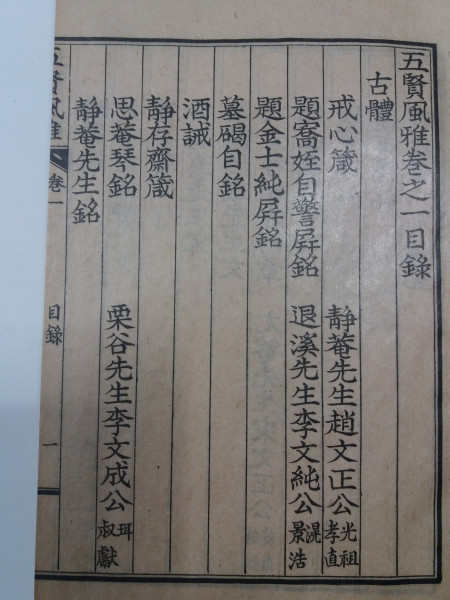 五賢風雅卷之一目錄
古體
戒心箴 靜菴先生趙文正公 光祖 孝直
題嵩姪自警屛銘 退溪先生李文純公 滉 景浩
題金士純屛銘
墓碣自銘
酒誡
靜存齋箴
思菴琴銘 栗谷先生李文成公 珥 叔獻
靜菴先生銘
五賢風雅 卷一 目錄 一